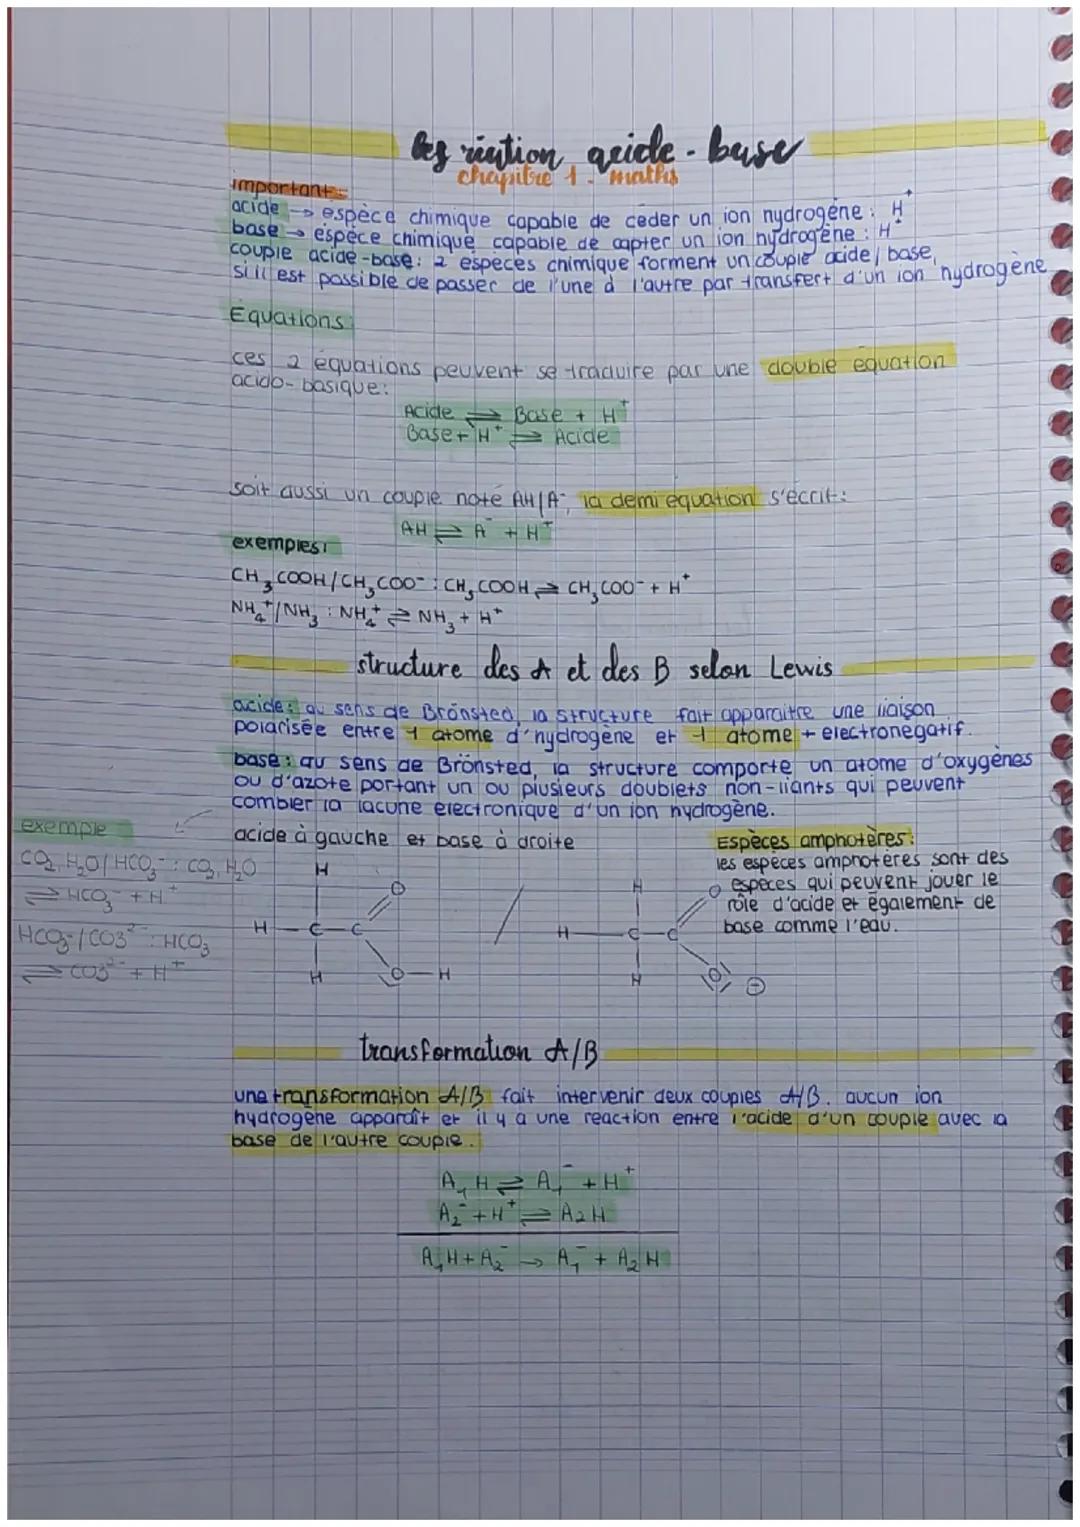 les réaction acide-base
chapitre 1. maths
important:
acide → espèce chimique capable de céder un ion hydrogène : H⁺
base → espèce chimique capable de capter un ion hydrogène : H⁺
couple acide-base: 2 espèces chimique forment un couple acide/base,
si il est possible de passer de l'une à l'autre par transfert d'un ion hydrogène
Equations
ces 2 équations peuvent se traduire par une double équation
acido-basique:
Acide ⇌ Base + H⁺
Base + H⁺ ⇌ Acide
soit aussi un couple noté AH/A⁻, la demi équation s'écrit:
AH ⇌ A⁻ + H⁺
exemples:
CH₃COOH/CH₃COO⁻ : CH₃COOH ⇌ CH₃COO⁻ + H⁺
NH₄⁺/NH₃ : NH₄⁺ ⇌ NH₃ + H⁺
structure des A et des B selon Lewis
acide: au sens de Brönsted, la structure fait apparaitre une liaison
polarisée entre 1 atome d'hydrogène et 1 atome + electronegatif.
base: au sens de Brönsted, la structure comporte un atome d'oxygènes
ou d'azote portant un ou plusieurs doublets non-liants qui peuvent
combler la lacune electronique d'un ion hydrogène.
exemple
CO₂, H₂O/HCO₃⁻ : CO₂, H₂O
⇌ HCO₃⁻ + H⁺
HCO₃⁻/CO3²⁻ : HCO₃
⇌ CO3²⁻ + H⁺
acide à gauche et base à droite
H
O
H — C — C
H
O — H
/
H
O
H — C — C
H
O ⊖
Espèces amphotères:
les espèces amphotères sont des
espèces qui peuvent jouer le
rôle d'acide et également de
base comme l'eau.
transformation A/B
une transformation A/B fait intervenir deux couples A/B. aucun ion
hydrogène apparaît et il y a une reaction entre l'acide d'un couple avec la
base de l'autre couple.
A₁H ⇌ A₁⁻ + H⁺
A₂⁻ + H⁺ ⇌ A2H
A₁H + A₂⁻ → A₁⁻ + A₂H